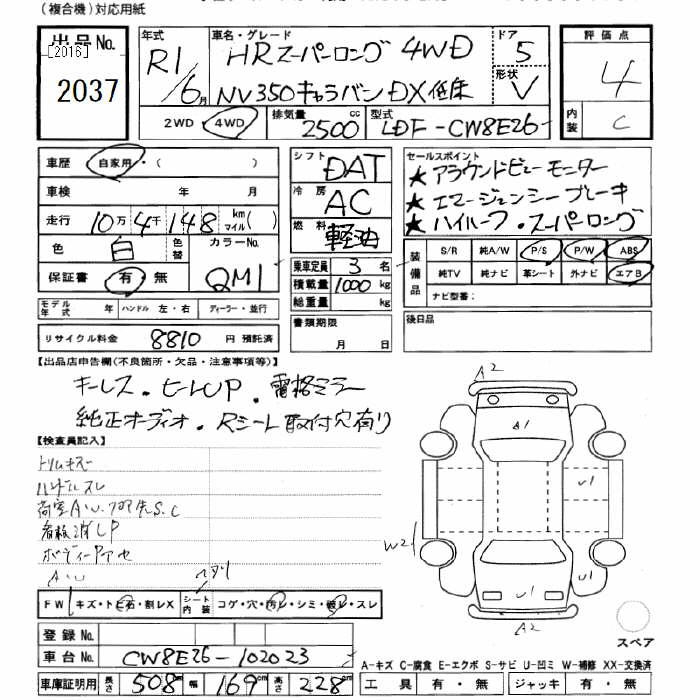 (複合機)対応用紙
出品No.
[2016]
2037
年式
R1/6月
車名・グレード
HRスーパーロング 4WD
NV350キャラバン DX低床
ドア
5
形状
V
評価点
4
内装
C
2WD・4WD
排気量
2500cc
型式
LDF-CW8E26-
車歴 自家用・( )
車検 年 月
走行 10万4千148 km マイル( )
色 白 色替 カラーNo.
保証書 有・無 QM1
シフト DAT
冷房 AC
燃料 軽油
セールスポイント
★アラウンドビューモニター
★エマージェンシーブレーキ
★ハイルーフ・スーパーロング
乗車定員 3名
積載量 1000kg
総重量 kg
装備品
S/R 純A/W P/S P/W ABS
純TV 純ナビ 革シート 外ナビ エアB
ナビ型番:
モデル年式 年 ハンドル 左・右 ディーラー・並行
書類期限
月 日
後日品
リサイクル料金 8810 円 預託済
【出品店申告欄(不良箇所・欠品・注意事項等)】
キーレス.ヒーLUP.電格ミラー
純正オーディオ.Rシート取付穴有り
【検査員記入】
トリムキズ
ハンドルスレ
荷室A.U.
S.C
ボディー
A.U
ヘタリ
FW キズ・トビ石・割レX シート内装 コゲ・穴・汚レ・シミ・破レ・スレ
A2
A1
U1
U1
W2
U1
A2
スペア
登録No.
車台No. CW8E26-102023
A-キズ C-腐食 E-エクボ S-サビ U-凹ミ W-補修 XX-交換済
車庫証明用 長さ 508cm 幅 169cm 高さ 228cm
工具 有・無 ジャッキ 有・無